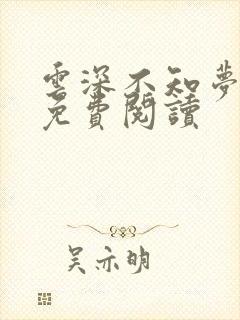 雲深不知夢
免費閱讀
吴亦明